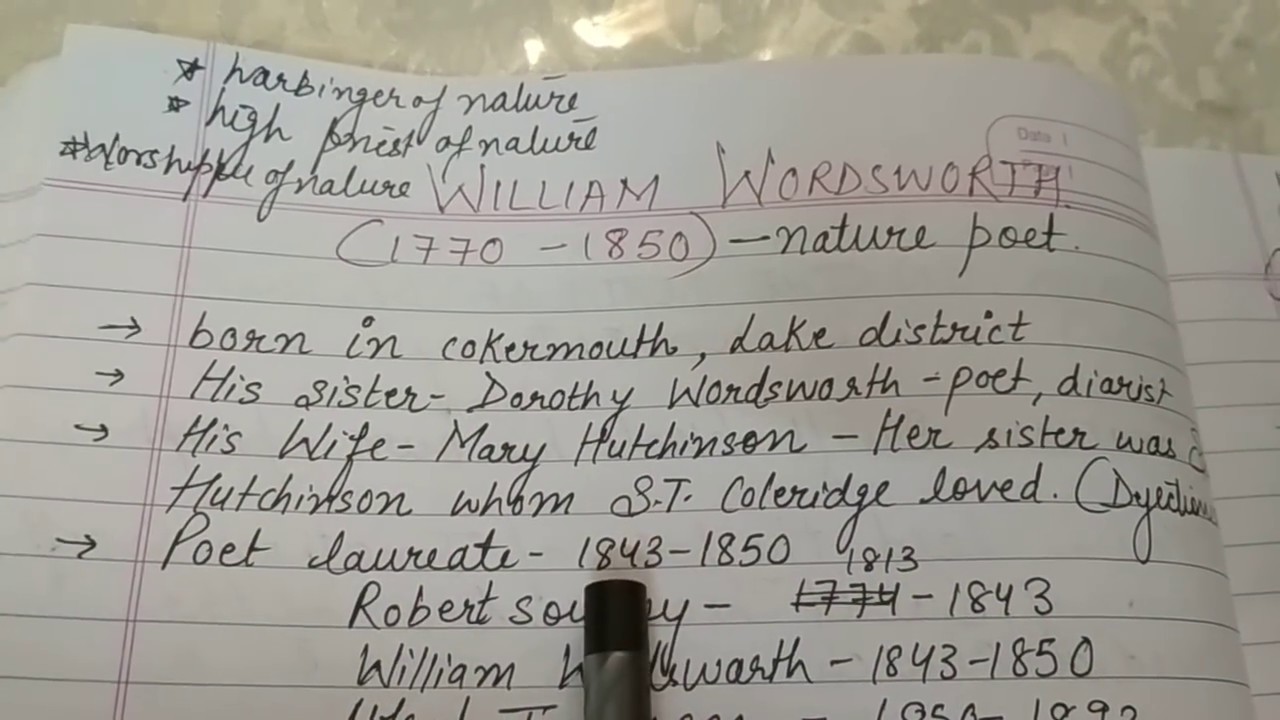 * harbinger of nature
* high priest of nature
* Worshipper of nature WILLIAM WORDSWORTH
Date
(1770 - 1850) - nature poet.
→ born in cokermouth, Lake district
→ His sister - Dorothy Wordsworth - poet, diarist
→ His Wife - Mary Hutchinson - Her sister was
Hutchinson whom S.T. Coleridge loved. (Dejection
→ Poet laureate - 1843-1850
1813
Robert - 1774 - 1843
William - 1843-1850